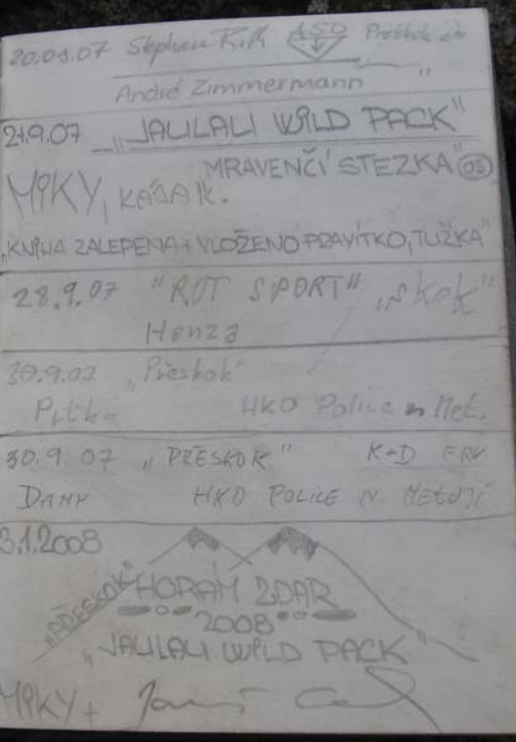 20.09.07 Stephan ASD
André Zimmermann "
21.9.07 „JALILALI WILD PACK"
MRAVENČÍ STEZKA"
MIKY, KÁJA K.
„KNIHA ZALEPENA + VLOŽENO PRAVÍTKO, TUŽKA"
28.9.07 "ROT SPORT" „skok"
Honza
30.9.07 „Přeskok"
HKO Police n Met.
30.9 07 „PŘESKOK" K+D
DANY HKO POLICE N. METUJÍ
3.1.2008
„PŘESKOK" HORÁM ZDAR
2008
„JALILALI WILD PACK"
MIKY +